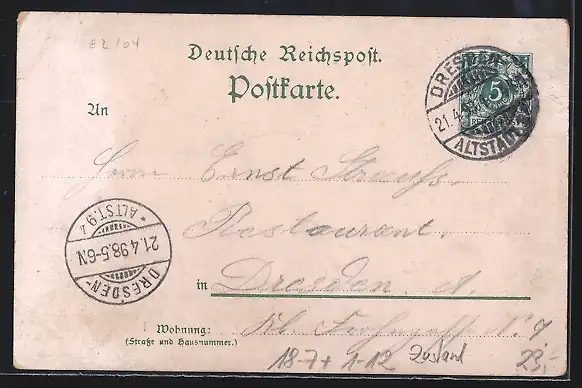 e2/04
Deutsche Reichspost.
Postkarte.
DRESDEN
5
21.4.98
ALTSTADT
An
Herrn Ernst Strauss.
Restaurant.
* ALTST. 9 *
21.4.98.5-6N.
DRESDEN-
in Dresden. A.
Wohnung: Kl.
(Straße und Hausnummer.)
18-7+ 1-12 Zustand 23,-